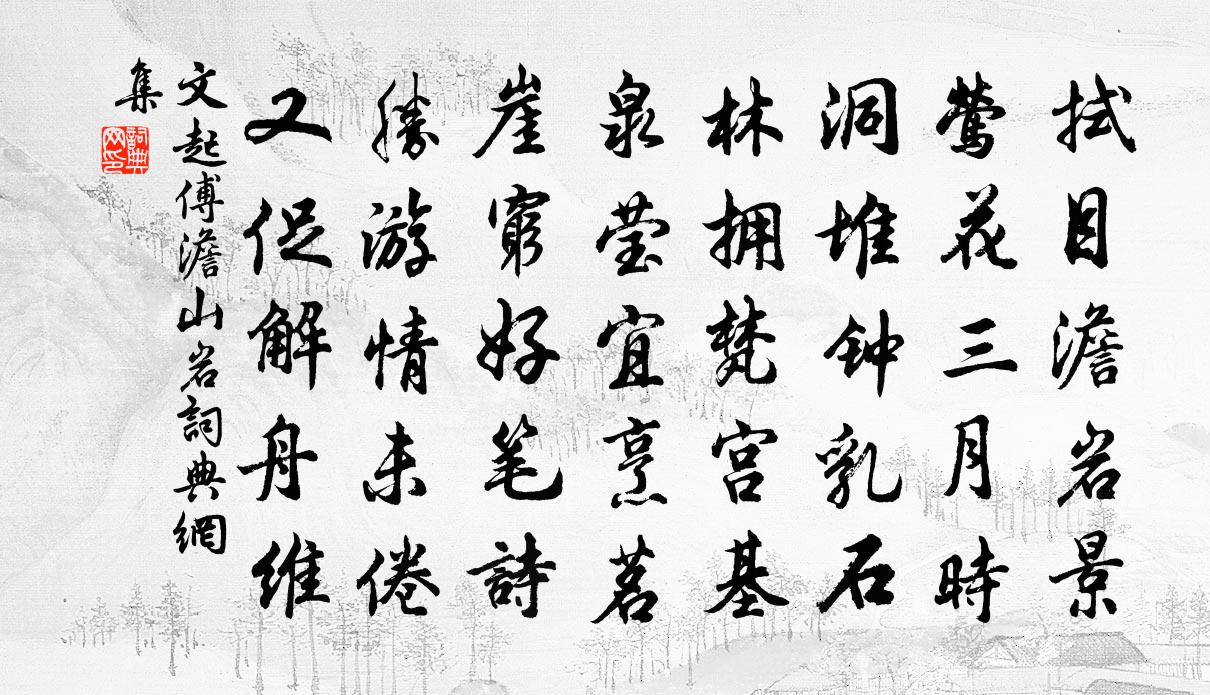 拭目澹岩景
莺花三月時
洞堆钟乳石
林拥梵宫基
泉莹宜烹茗
崖窮好笔詩
勝游情未倦
又促解舟维
文起傅澹山岩詞典網
集
詞典網印